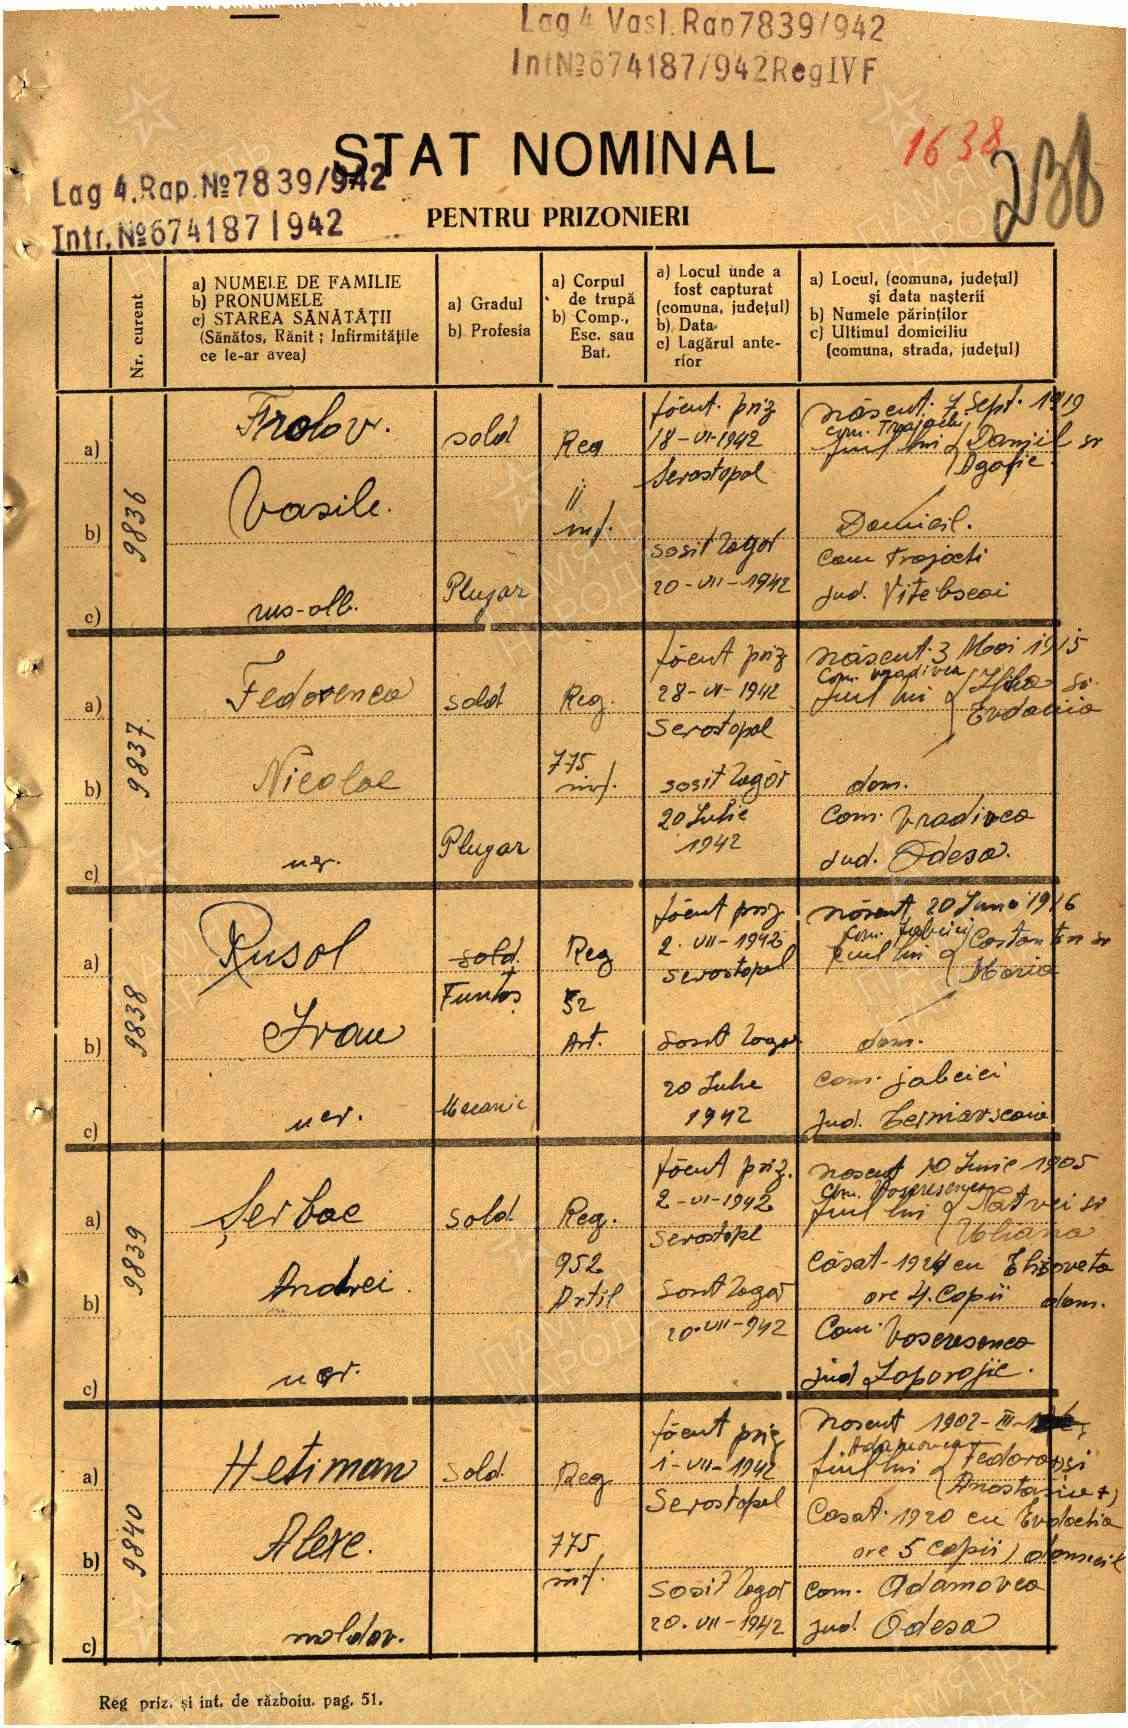 Lag 4 Vasl. Rap 7839/942
Int№674187/942 Reg IV F
1638
238
STAT NOMINAL
Lag 4. Rap. №7839/942
PENTRU PRIZONIERI
Intr. №674187/942
Nr. curent
a) NUMELE DE FAMILIE
b) PRONUMELE
c) STAREA SĂNĂTĂȚII
(Sănătos, Rănit ; Infirmitățile
ce le-ar avea)
a) Gradul
b) Profesia
a) Corpul
de trupă
b) Comp.,
Esc. sau
Bat.
a) Locul unde a
fost capturat
(comuna, județul)
b) Data
c) Lagărul ante-
rior
a) Locul, (comuna, județul)
și data nașterii
b) Numele părinților
c) Ultimul domiciliu
(comuna, strada, județul)
a)
b)
c)
9836
Frolov.
Vasile.
rus-alb.
sold
Plugar
Reg
11
inf.
făcut priz
18-VI-1942
Sevastopol
sosit lagăr
20-VII-1942
născut 7 Sept. 1919
com. Trajachi
fiul lui Daniil și
Agafie
Domicil.
com Trajachi
jud. Vitebscai
a)
b)
c)
9837
Fedorenco
Nicolae
ucr.
sold
Plugar
Reg.
775
inf.
făcut priz
28-VI-1942
Sevastopol
sosit lagăr
20 Iulie
1942
născut 3 Mai 1915
com. Vradivca
fiul lui Ilia și
Evdochia
dom.
com. Vradivca
jud. Odesa.
a)
b)
c)
9838
Rusol
Ivan
ucr.
sold.
Funtaș
Mecanic
Reg
52
Art.
făcut priz
2. VII-1942
Sevastopol
sosit lagăr
20 Iulie
1942
născut 20 Iunie 1916
com. Jabcici
fiul lui Costantin și
Maria
dom.
com. jabcici
jud.
a)
b)
c)
9839
Șerbac
Andrei
ucr.
sold.
Reg.
952
Artil
făcut priz.
2-VI-1942
Sevastopl
sosit lagăr
20-VII-942
născut 10 Iunie 1905
com.
fiul lui Matvei și
Uliana
Căsat 1924 cu Elisoveta
are 4 copii dom.
Com. Voscresenca
jud Zaporojie.
a)
b)
c)
9840
Hetiman
Alexe.
moldov.
sold.
Reg
775
inf.
făcut priz
1-VII-1942
Sevastopol
Sosit lagăr
20.VII-1942
născut 1902-III-
Adamovca
fiul lui Fedor și
Anastasiie +)
Căsat. 1920 cu Evdochia
are 5 copii, domicil
com. Adamovca
jud Odesa
Reg priz. și int. de războiu. pag. 51.
ПАМЯТЬ
НАРОДА